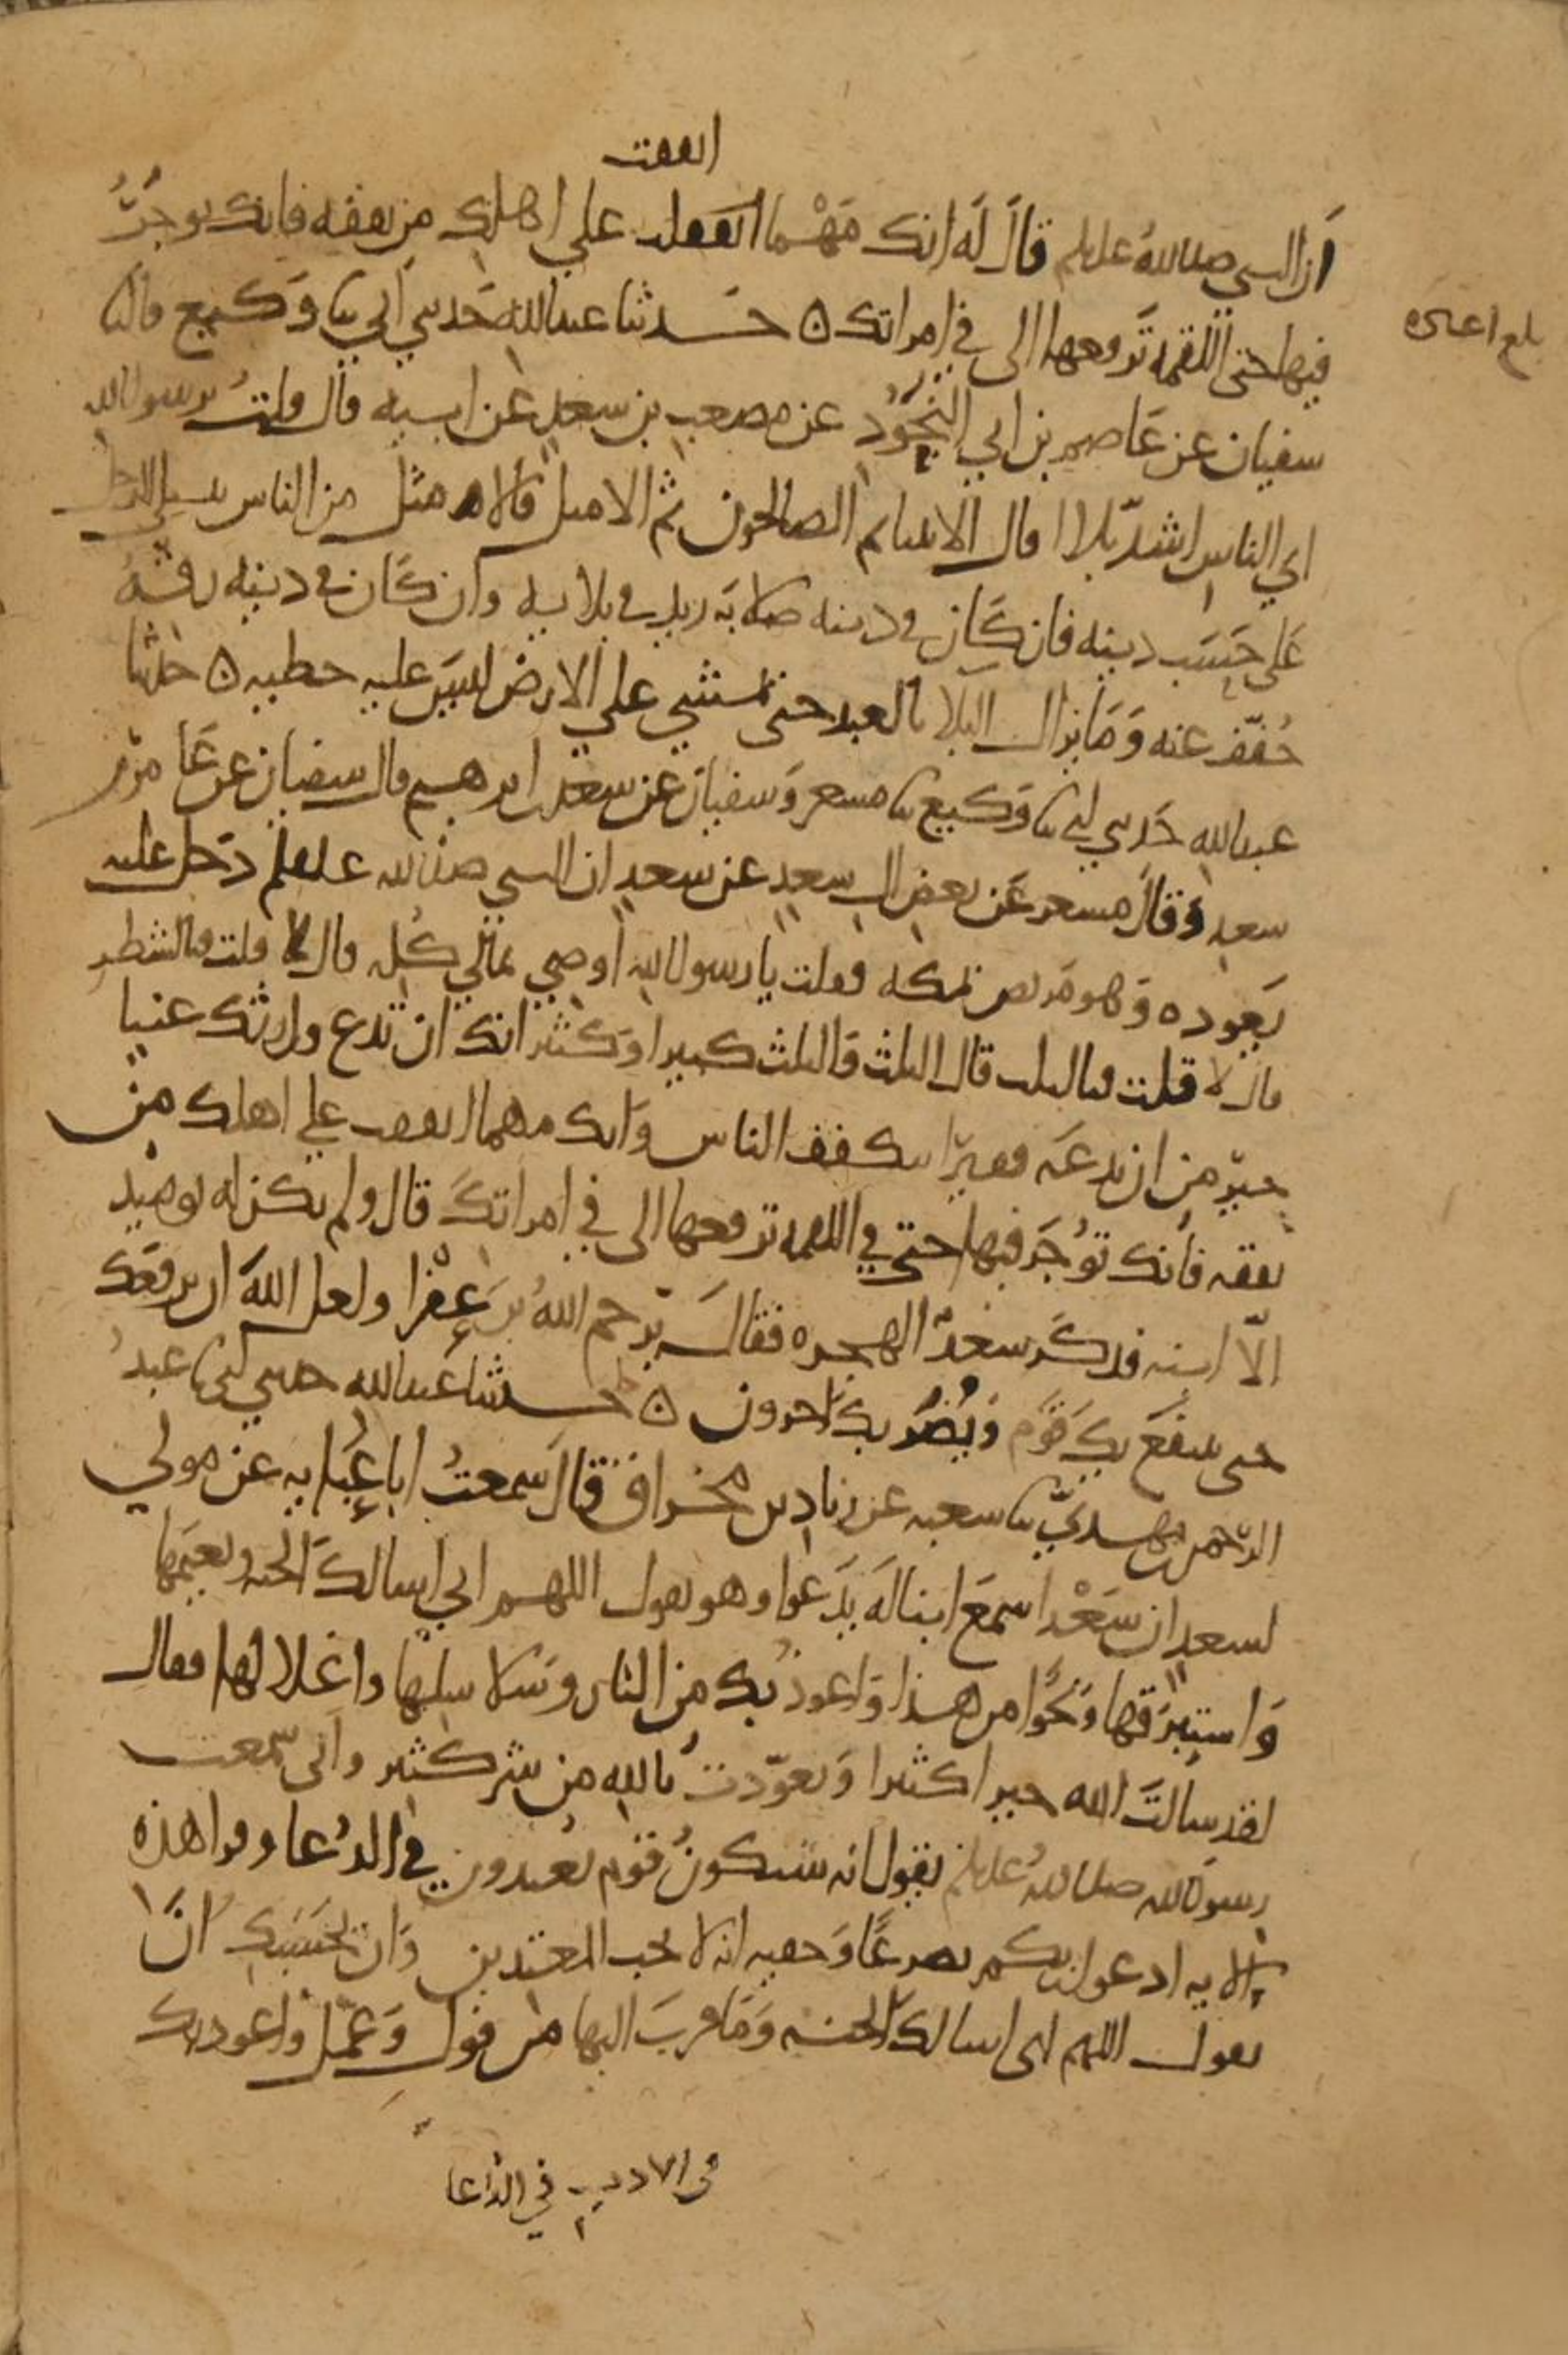 انفقت
أن النبي صلى الله عليه وسلم قالَ لَه انك مَهْما انفقت على اهلك من نفقه فانك توجرُ
فيها حتى اللقمه تَرفعها الى في امراتك ه حَدثنا عبدالله حَدثني أبي ثنا وَكيع قالنا
سفيان عن عَاصم بن ابي النجُوُد عن مصعب بن سعدٍ عن ابيه قال قلتُ يرسول الله
اي الناس اشدّ بلاا قال الانبيا ثم الصالحون ثم الامثل فالامثل من الناس يبتلي الرجل
عَلى حَسَب دينه فان كَان في دينه صلابَه زيد في بلايه وان كَان في دينه رقه
خُفّف عنه وَمَا يزال البلا بالعبد حتى يمشي على الارض ليسَ عليه خطيه ه حدثنا
عبدالله حَدثني ابي ثنا وَكيع ثنا مسعر وَسفيان عن سعد بن ابرهيم قال سفيان عن عَامر بن
سعدٍ وَقال مسعر عَن بعض ال سعدٍ عن سعدٍ ان النبي صلى الله عليه وسلم دَخل عليه
يَعوده وَهو مَريض بمكه فقلت يا رسول الله أوصي بمالي كُله قال لا قلت فبالشطر
قال لا قلت فبالثلث قال الثلث وَالثلث كبير اوَكثير انك ان تدع وارثك غنيا
خيرٌ من ان تدعَه فقيرًا يتكفف الناس وَانك مهما انفقت على اهلك من
نفقه فانك تؤجَر فيها حتى في اللقمه ترفعها الى في امراتكَ قال ولم يكن له يوميذ
الّا ابنه فذكَر سَعْدٌ الهجره فقالَ يرَحم اللهُ بنَ عَفْرا ولعل اللهَ ان يرفعَك
حتى ينتفعَ بكَ قَوم وَيُضَر بكَ اخرون ه حَدثنا عَبدالله حدثني ابي ثنا عبدُ
الرَحمن بن مهديّ ثنا شعبه عن زياد بن مخراق قال سَمعتُ ابا عَبَايه عن مولى
لسعدٍ ان سَعْدا سمعَ ابنا لَه يدَعوا وهو يقول اللهم اني اسالكَ الجنه ونعيمَها
وَاستبرَقها وَنحَوًا من هذا وَاعوذُ بكَ من النار وَسَلاسلها واغلالها فقال
لقد سَالتَ الله خيرا كثيرا وَتعوّذتَ بالله من شر كثير وانى سَمعت
رسول الله صلى اللهُ عليه وسلم يقول انه سَيكونُ قوم يَعتدون في الدُعا وقرا هذه
الايه ادعوا ربكم تضرعًا وَخفيه انه لا يحب المعتدين وَان بحَسَبكَ انَ
تقول اللهم انى اسالكَ الجنه وَمَا قربَ اليها من قول وَعَمَل واعوذ بكَ
في الادب في الدعا